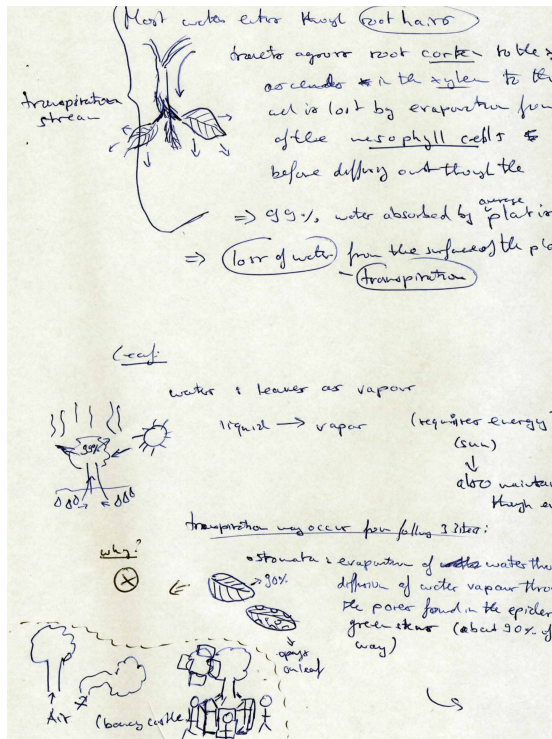 Most water enters through root hairs
travels across root corten to the
ascends in the xylem to the
transpiration
stream
ad is lost by evaporation from
of the mesophyll cells
before diffusing out through the
⇒ 99% water absorbed by average plat is
⇒ loss of water from the surface of the pla
- transpiration
Leaf:
water : leaves as vapour
99%
liquid → vapor (requires energy
(sun)
↓
also maintai
though e
transpiration may occur from following 3 sites:
why?
stomata : evaporation of water thro
90%
diffusion of water vapour thro
the pores found in the epider
green stems (about 90% of
way)
on leaf
Air
(bouncy castle)